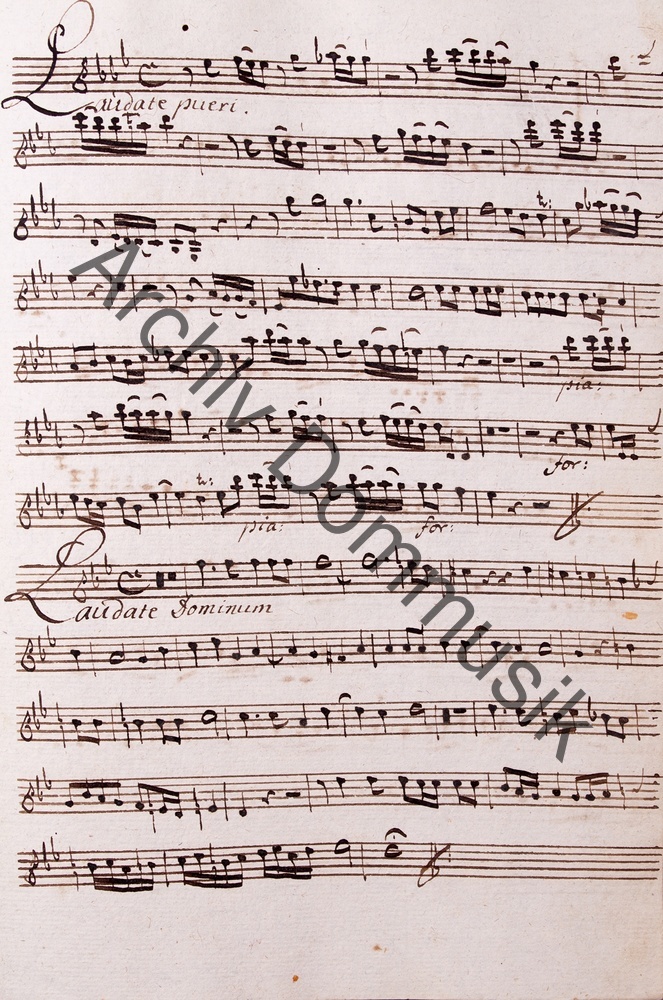 Laudate pueri.
tr:
pia:
for:
tr:
pia: for:
Laudate Dominum
Archiv Dommusik